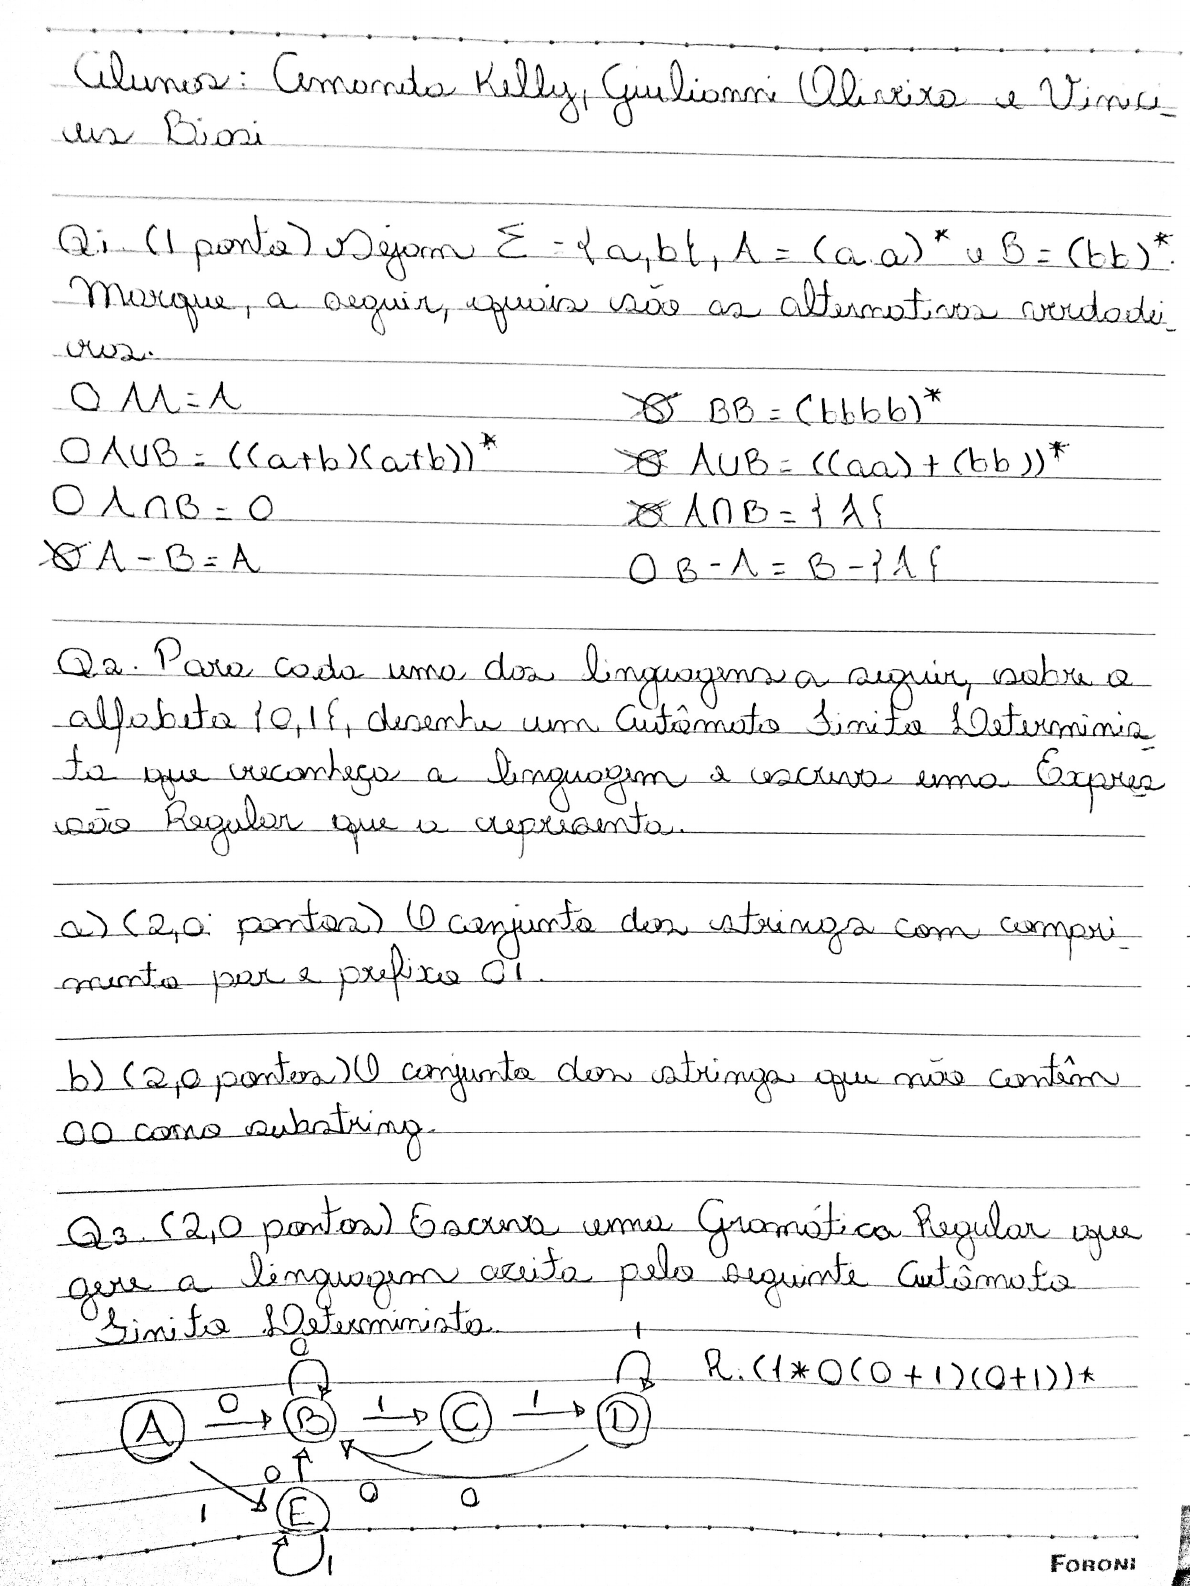 Alunos: Amanda Kelly, Giulianni Oliveira e Viníci-
us Biasi
Q1. (1 ponto) Sejam Σ = {a,b}, A = (a.a)* e B = (bb)*.
Marque, a seguir, quais são as alternativas verdadei-
ras.
O AA = A
⊗ BB = (bbbb)*
O A∪B = ((a+b)(a+b))*
⊗ A∪B = ((aa)+(bb))*
O A∩B = 0
⊗ A∩B = {λ}
⊗ A - B = A
O B - A = B - {λ}
Q2. Para cada uma das linguagens a seguir, sobre o
alfabeto {0,1}, desenhe um Autômato Finito Determinis-
ta que reconheça a linguagem e escreva uma Expres
são Regular que a represente.
a) (2,0 pontos) O conjunto das strings com compri-
mento par e prefixo 01.
b) (2,0 pontos) O conjunto das strings que não contêm
00 como substring.
Q3. (2,0 pontos) Escreva uma Gramática Regular que
gere a linguagem aceita pelo seguinte Autômato
Finito Determinista.
R. (1*0(0+1)(0+1))*
0 1
A 0 B 1 C 1 D
1 0 0 0
E
1
FORONI